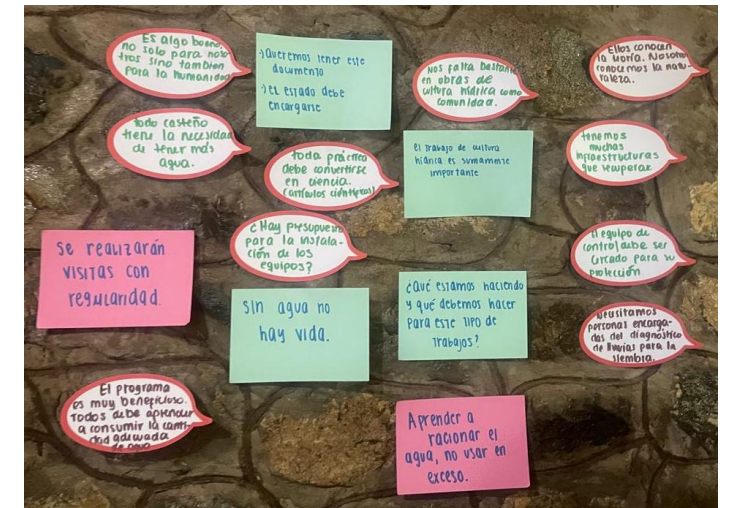 Es algo bueno,
no solo para noso-
tros sino también
para la humanidad
-) Queremos tener este
documento
-) el estado debe
encargarse
Nos falta bastante
en obras de
cultura hídrica como
comunidad.
Ellos conocen
la teoría. Nosotros
conocemos la natu-
raleza.
todo casteño
tiene la necesidad
de tener más
agua.
toda práctica
debe convertirse
en ciencia.
(artículos científicos)
el trabajo de cultura
hídrica es sumamente
importante
tenemos
muchas
infraestructuras
que recuperar
Se realizarán
visitas con
regularidad.
¿Hay presupuesto
para la instala-
ción de los
equipos?
El equipo de
control debe ser
cercado para su
protección
Sin agua no
hay vida.
¿Qué estamos haciendo
y qué debemos hacer
para este tipo de
trabajos?
Necesitamos
personas encarga-
das del diagnóstico
de lluvias para la
siembra.
El programa
es muy beneficioso.
Todos debe aprender
a consumir la canti-
dad adecuada
de agua
Aprender a
racionar el
agua, no usar en
exceso.